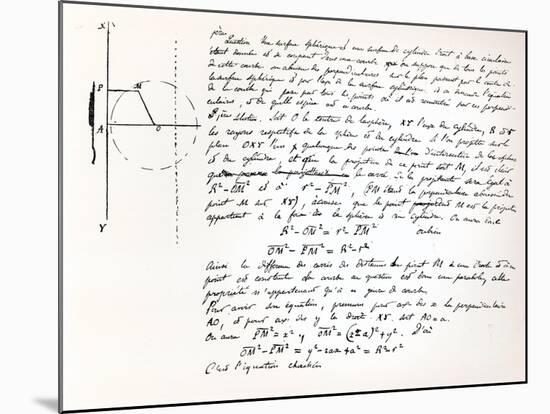 X
P
M
A
O
Y
Question Une surface sphérique et une surface de cylindre droit à base circulaire
étant données et se coupant dans une courbe XX on suppose que de tous les points
de cette courbe on abaisse des perpendiculaires sur le plan passant par le centre de
la surface sphérique et par l'axe de la surface cylindrique. On demande l'équation
de la courbe qui passe par tous les points où il est rencontré par ces perpendi-
culaires, et de quelle espèce est la courbe.
Solution. Soit O le centre de la sphère, XY l'axe du cylindre, R et r
les rayons respectifs de la sphère et du cylindre. Si l'on projette sur le
plan OXY l'un quelconque des points d'intersection de la sphère
et du cylindre, et que la projection de ce point soit M, il est clair
que le carré de la projetante sera égal à
R²-OM² et à r²-PM², (PM étant la perpendiculaire abaissée du
point M sur XY), à cause que le point M est la projection
appartient à la fois à la sphère et au cylindre. On aura donc
R²-OM² = r²-PM² ou bien
OM²-PM² = R²-r²
Ainsi la différence des carrés des distances du point M à une droite et à un
point est constante la courbe en question est donc une parabole, cette
propriété n'appartenant qu'à ce genre de courbe.
Pour avoir son équation, prenons pour axe des x la perpendiculaire
AO, et pour axe des y la droite XY. soit AO=a.
On aura PM²=x², OM²=(x-a)²+y². D'où
OM²-PM² = y²-2ax+a² = R²-r²
C'est l'équation cherchée